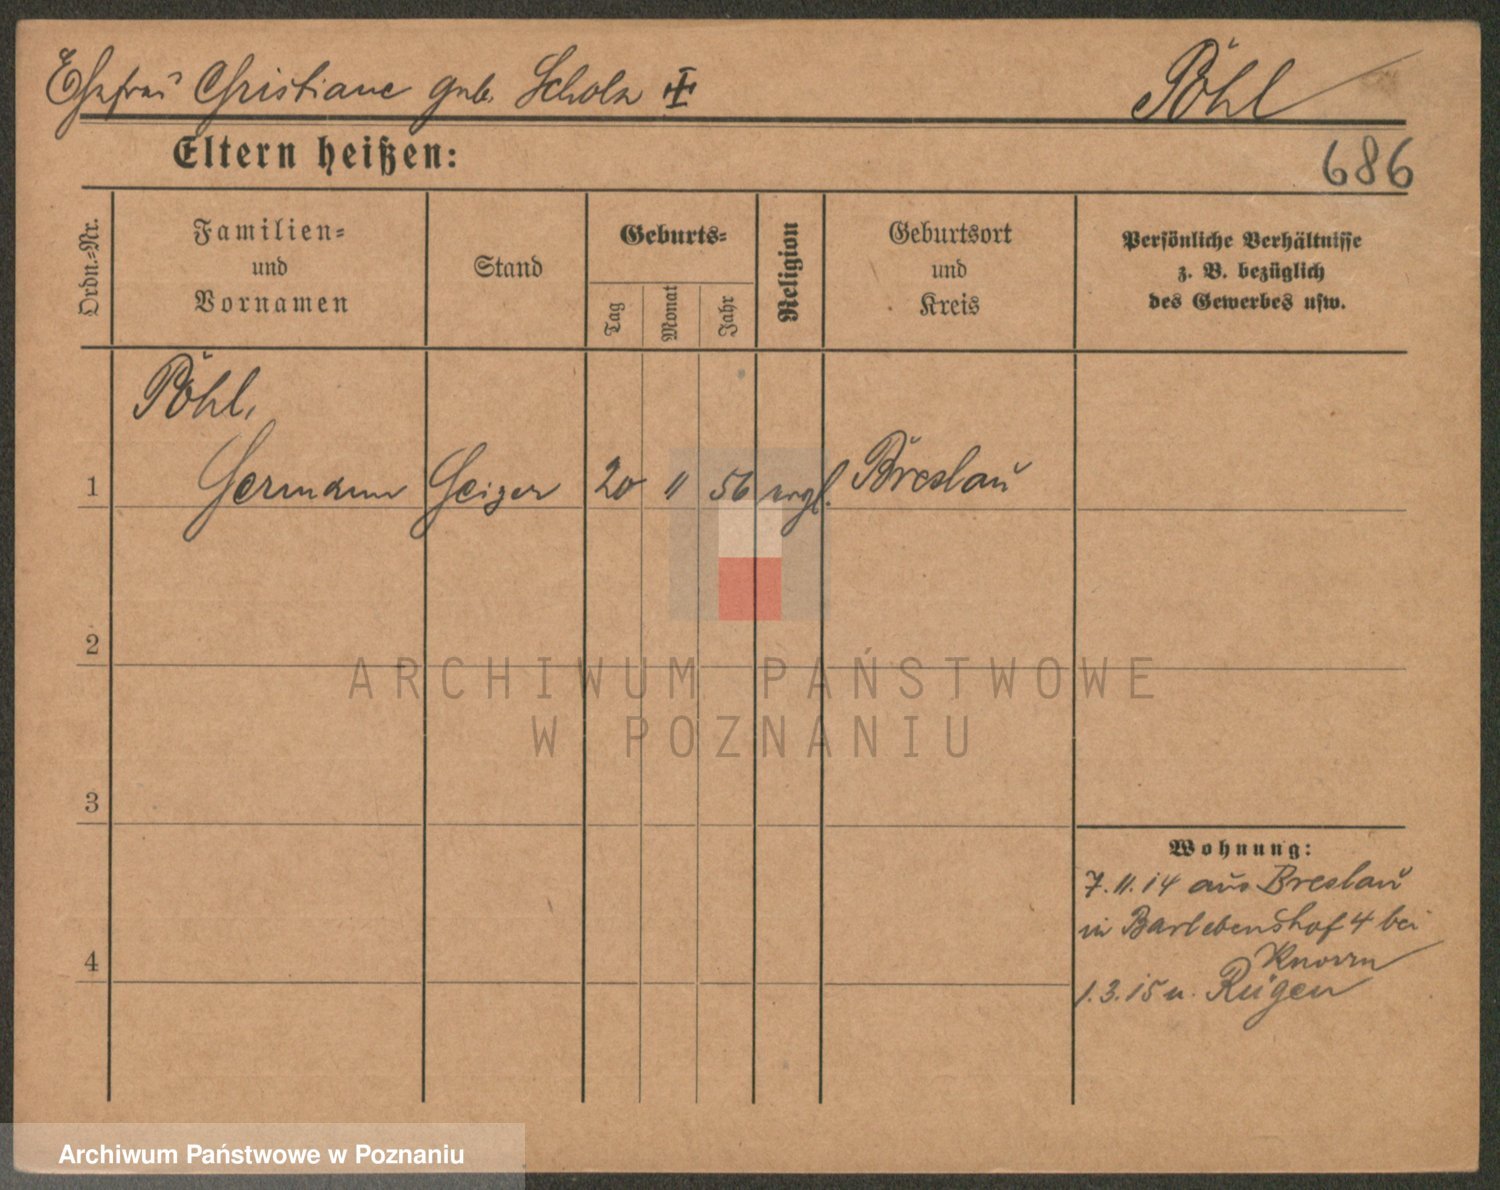 Ehefrau Christiane geb. Scholz
Pöhl
Eltern heißen:
686
Ordn.-Nr.
Familien-
und
Vornamen
Stand
Geburts-
Tag
Monat
Jahr
Religion
Geburtsort
und
Kreis
Persönliche Verhältnisse
z. B. bezüglich
des Gewerbes usw.
Pöhl,
1 Hermann Geiger 20 11 56 evgl. Breslau
2
3
4
Wohnung:
7.11.14 aus Breslau
in Barlebenshof 4 bei
Knorrn
1.3.15 n. Rügen
ARCHIWUM PAŃSTWOWE
W POZNANIU
Archiwum Państwowe w Poznaniu